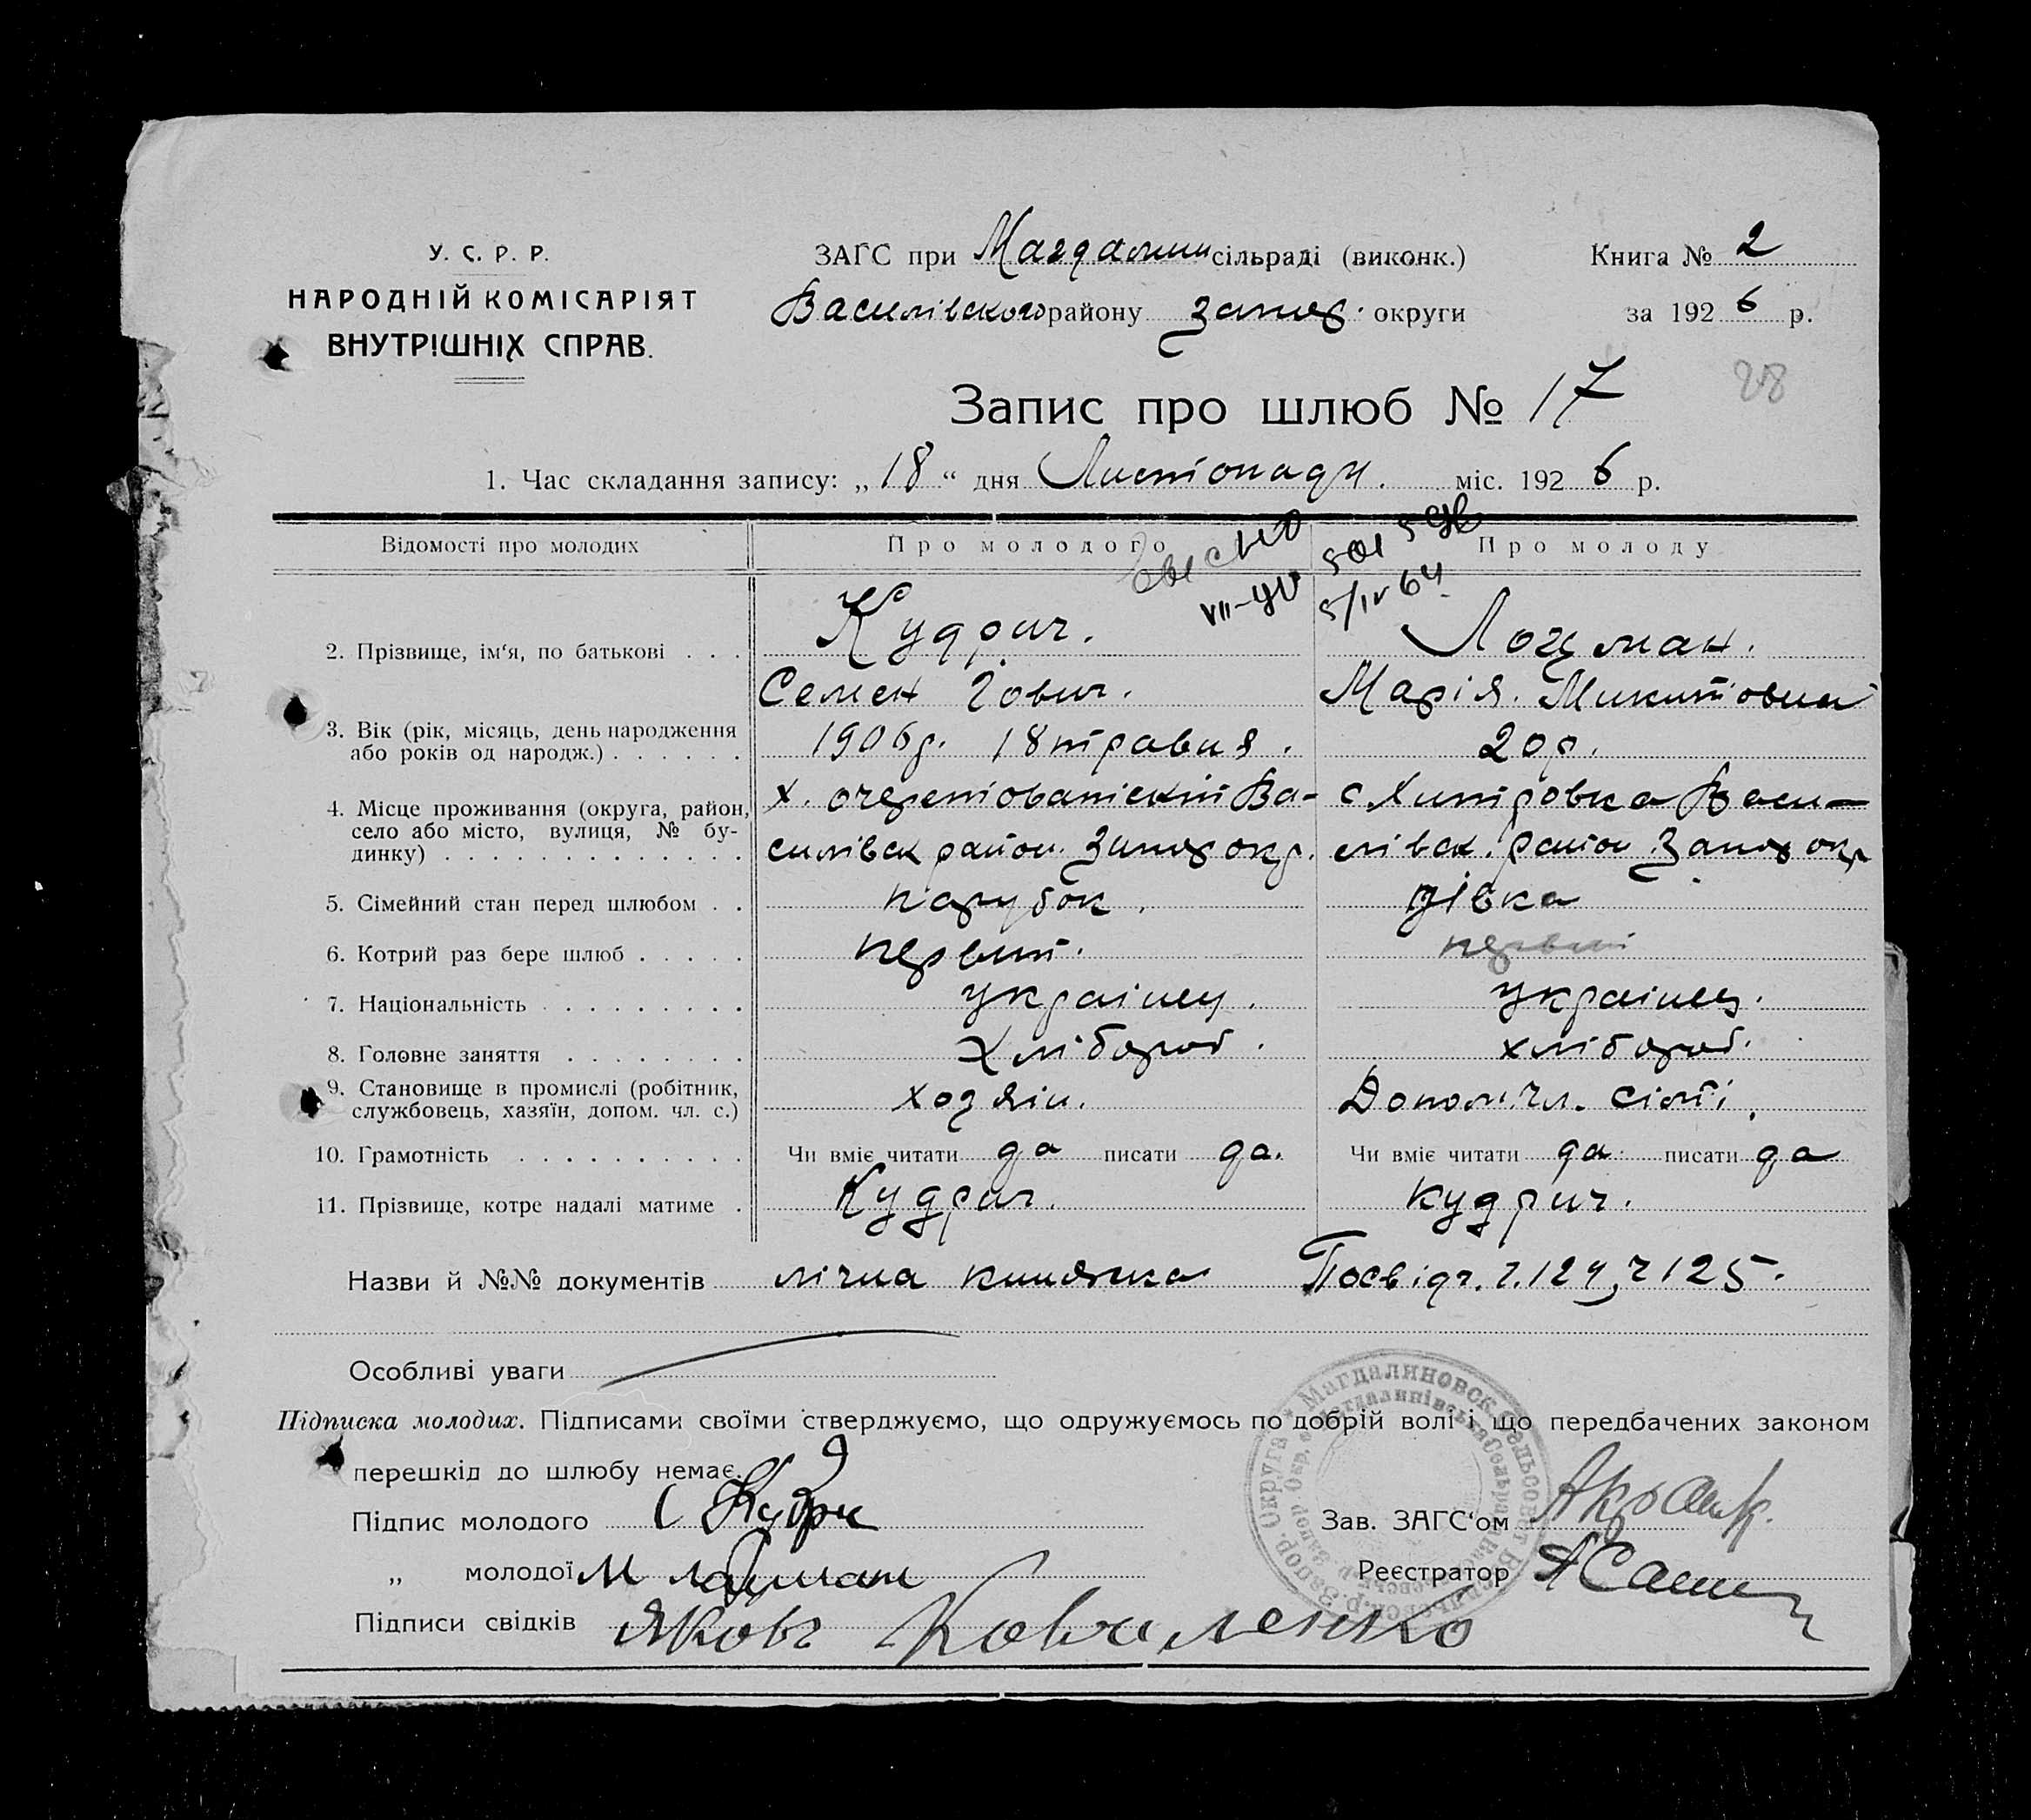 У. С. Р. Р.
НАРОДНІЙ КОМІСАРІЯТ
ВНУТРІШНІХ СПРАВ.
ЗАГС при Магдалин сільраді (виконк.)
Василівского району запор. округи
Книга № 2
за 192 6 р.
28
Запис про шлюб № 17
1. Час складання запису: „ 18 “ дня Листопада. міс. 192 6 р.
Відомості про молодих
Про молодого
Про молоду
5/IV 64
2. Прізвище, ім‘я, по батькові . . .
Кудрич.
Лоцман.
Семен Іович.
Марія. Микитовна
3. Вік (рік, місяць, день народження
або років од народж.) . . . . . .
1906р. 18 травня.
20р.
4. Місце проживання (округа, район,
село або місто, вулиця, № бу-
динку) . . . . . . . . . . . . .
х. Ва-
силівск район. Запор окр.
с. Хитровка Васи-
лівск. район Запор окр
5. Сімейний стан перед шлюбом . .
парубок.
дівка
6. Котрий раз бере шлюб . . . . .
первий.
первий
7. Національність . . . . . . . . .
українец.
українец.
8. Головне заняття . . . . . . . .
Хлібороб.
хлібороб.
9. Становище в промислі (робітник,
службовець, хазяїн, допом. чл. с.)
хозяін.
Допом. чл. сімі.
10. Грамотність . . . . . . . . . .
Чи вміє читати да писати да.
Чи вміє читати да писати да
11. Прізвище, котре надалі матиме .
Кудрич.
Кудрич.
Назви й №№ документів лічна книжка Посвідч. ч. 124, ч 125.
Особливі уваги
Підписка молодих. Підписами своїми стверджуємо, що одружуємось по добрій волі і що передбачених законом
перешкід до шлюбу немає.
Підпис молодого С Кудри
Зав. ЗАГС‘ом
„ молодої М Лоцман
Реєстратор
Підписи свідків Яковъ Ковчиленко